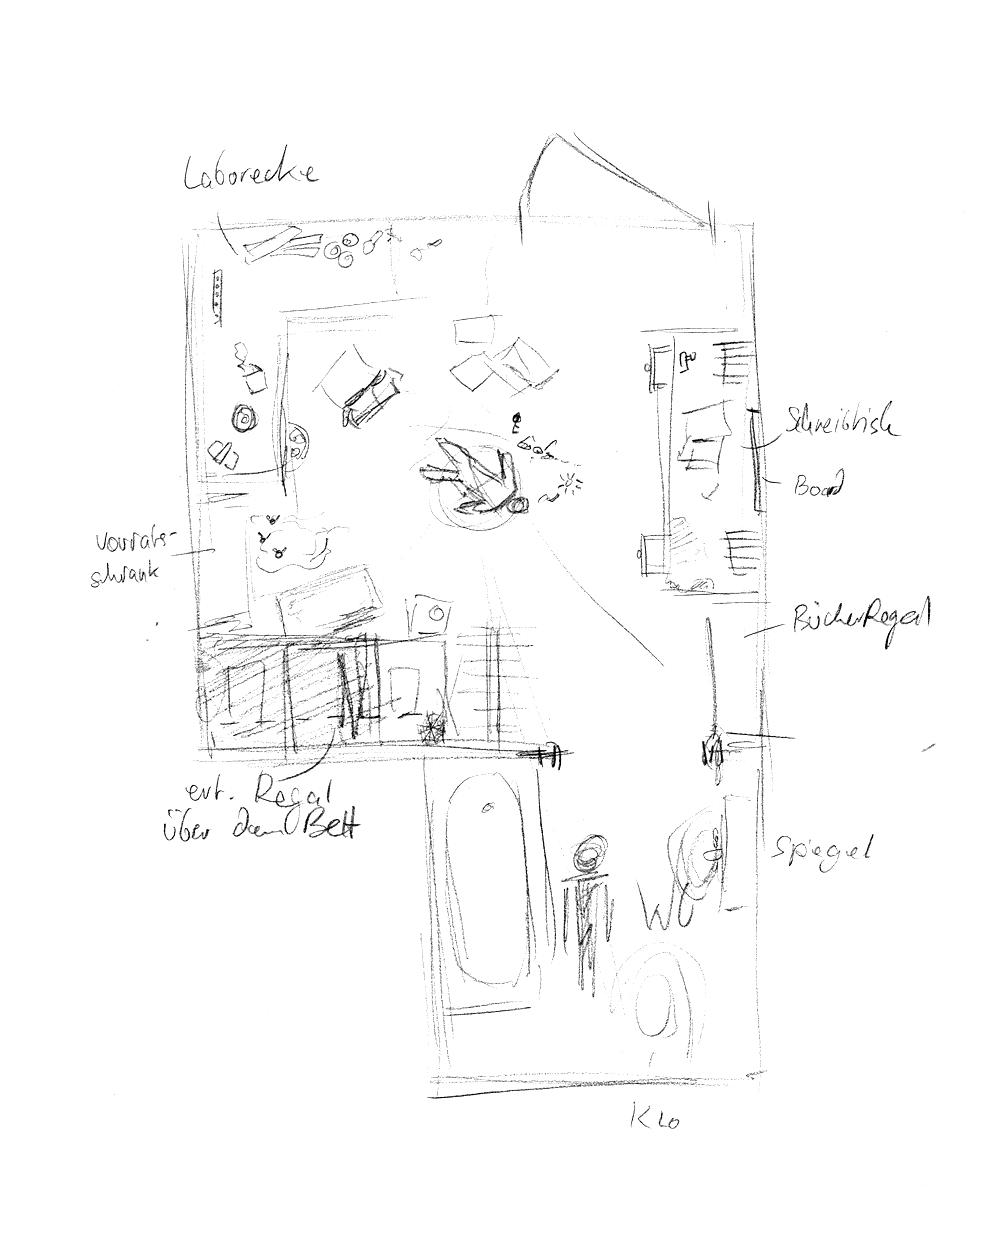 Laborecke
Schreibtisch
Board
Vorrats-
schrank
BücherRegal
evt. Regal
über dem Bett
Spiegel
Klo